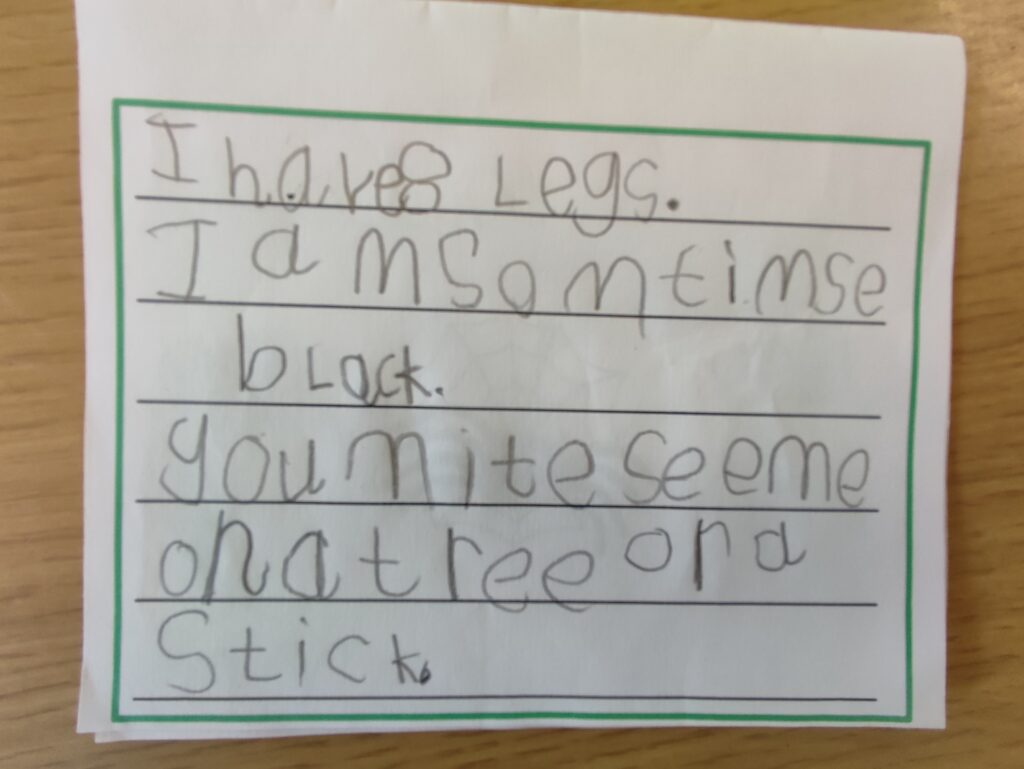 I have 8 Legs.
I am somtimse
bLack.
you mite see me
on a tree or a
Stick.